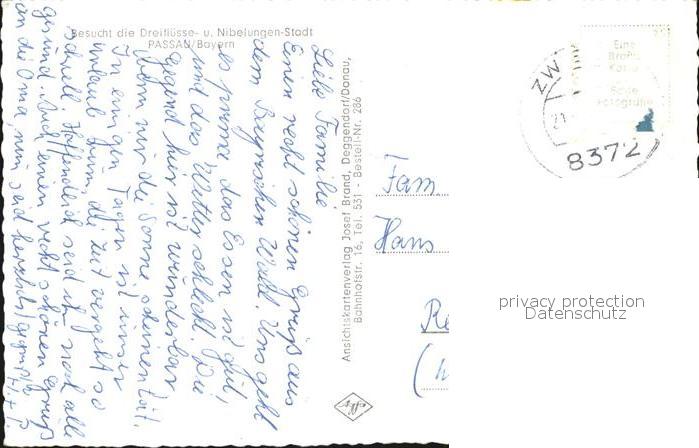 Besucht die Dreiflüsse- u. Nibelungen-Stadt
PASSAU/Bayern
Liebe Familie
Einen recht schönen Gruß aus
dem Bayrischen Wald. Uns geht
es prima das Essen ist gut,
und das Wetter schlecht. Die
Gegend hier ist wunderbar
wenn nur die Sonne scheinen tät.
In einigen Tagen ist unser
Urlaub rum, die Zeit vergeht so
schnell. Hoffendlich seid ihr noch alle
gesund. Auch einen recht schönen Gruß
an die Oma, nun seid herzlich gegrüßt
Ansichtskartenverlag Josef Brand, Deggendorf/Donau,
Bahnhofstr. 16, Tel. 531 - Bestell-Nr. 286
Fam.
Hans
Re
ZW
21.
8372
privacy protection
Datenschutz